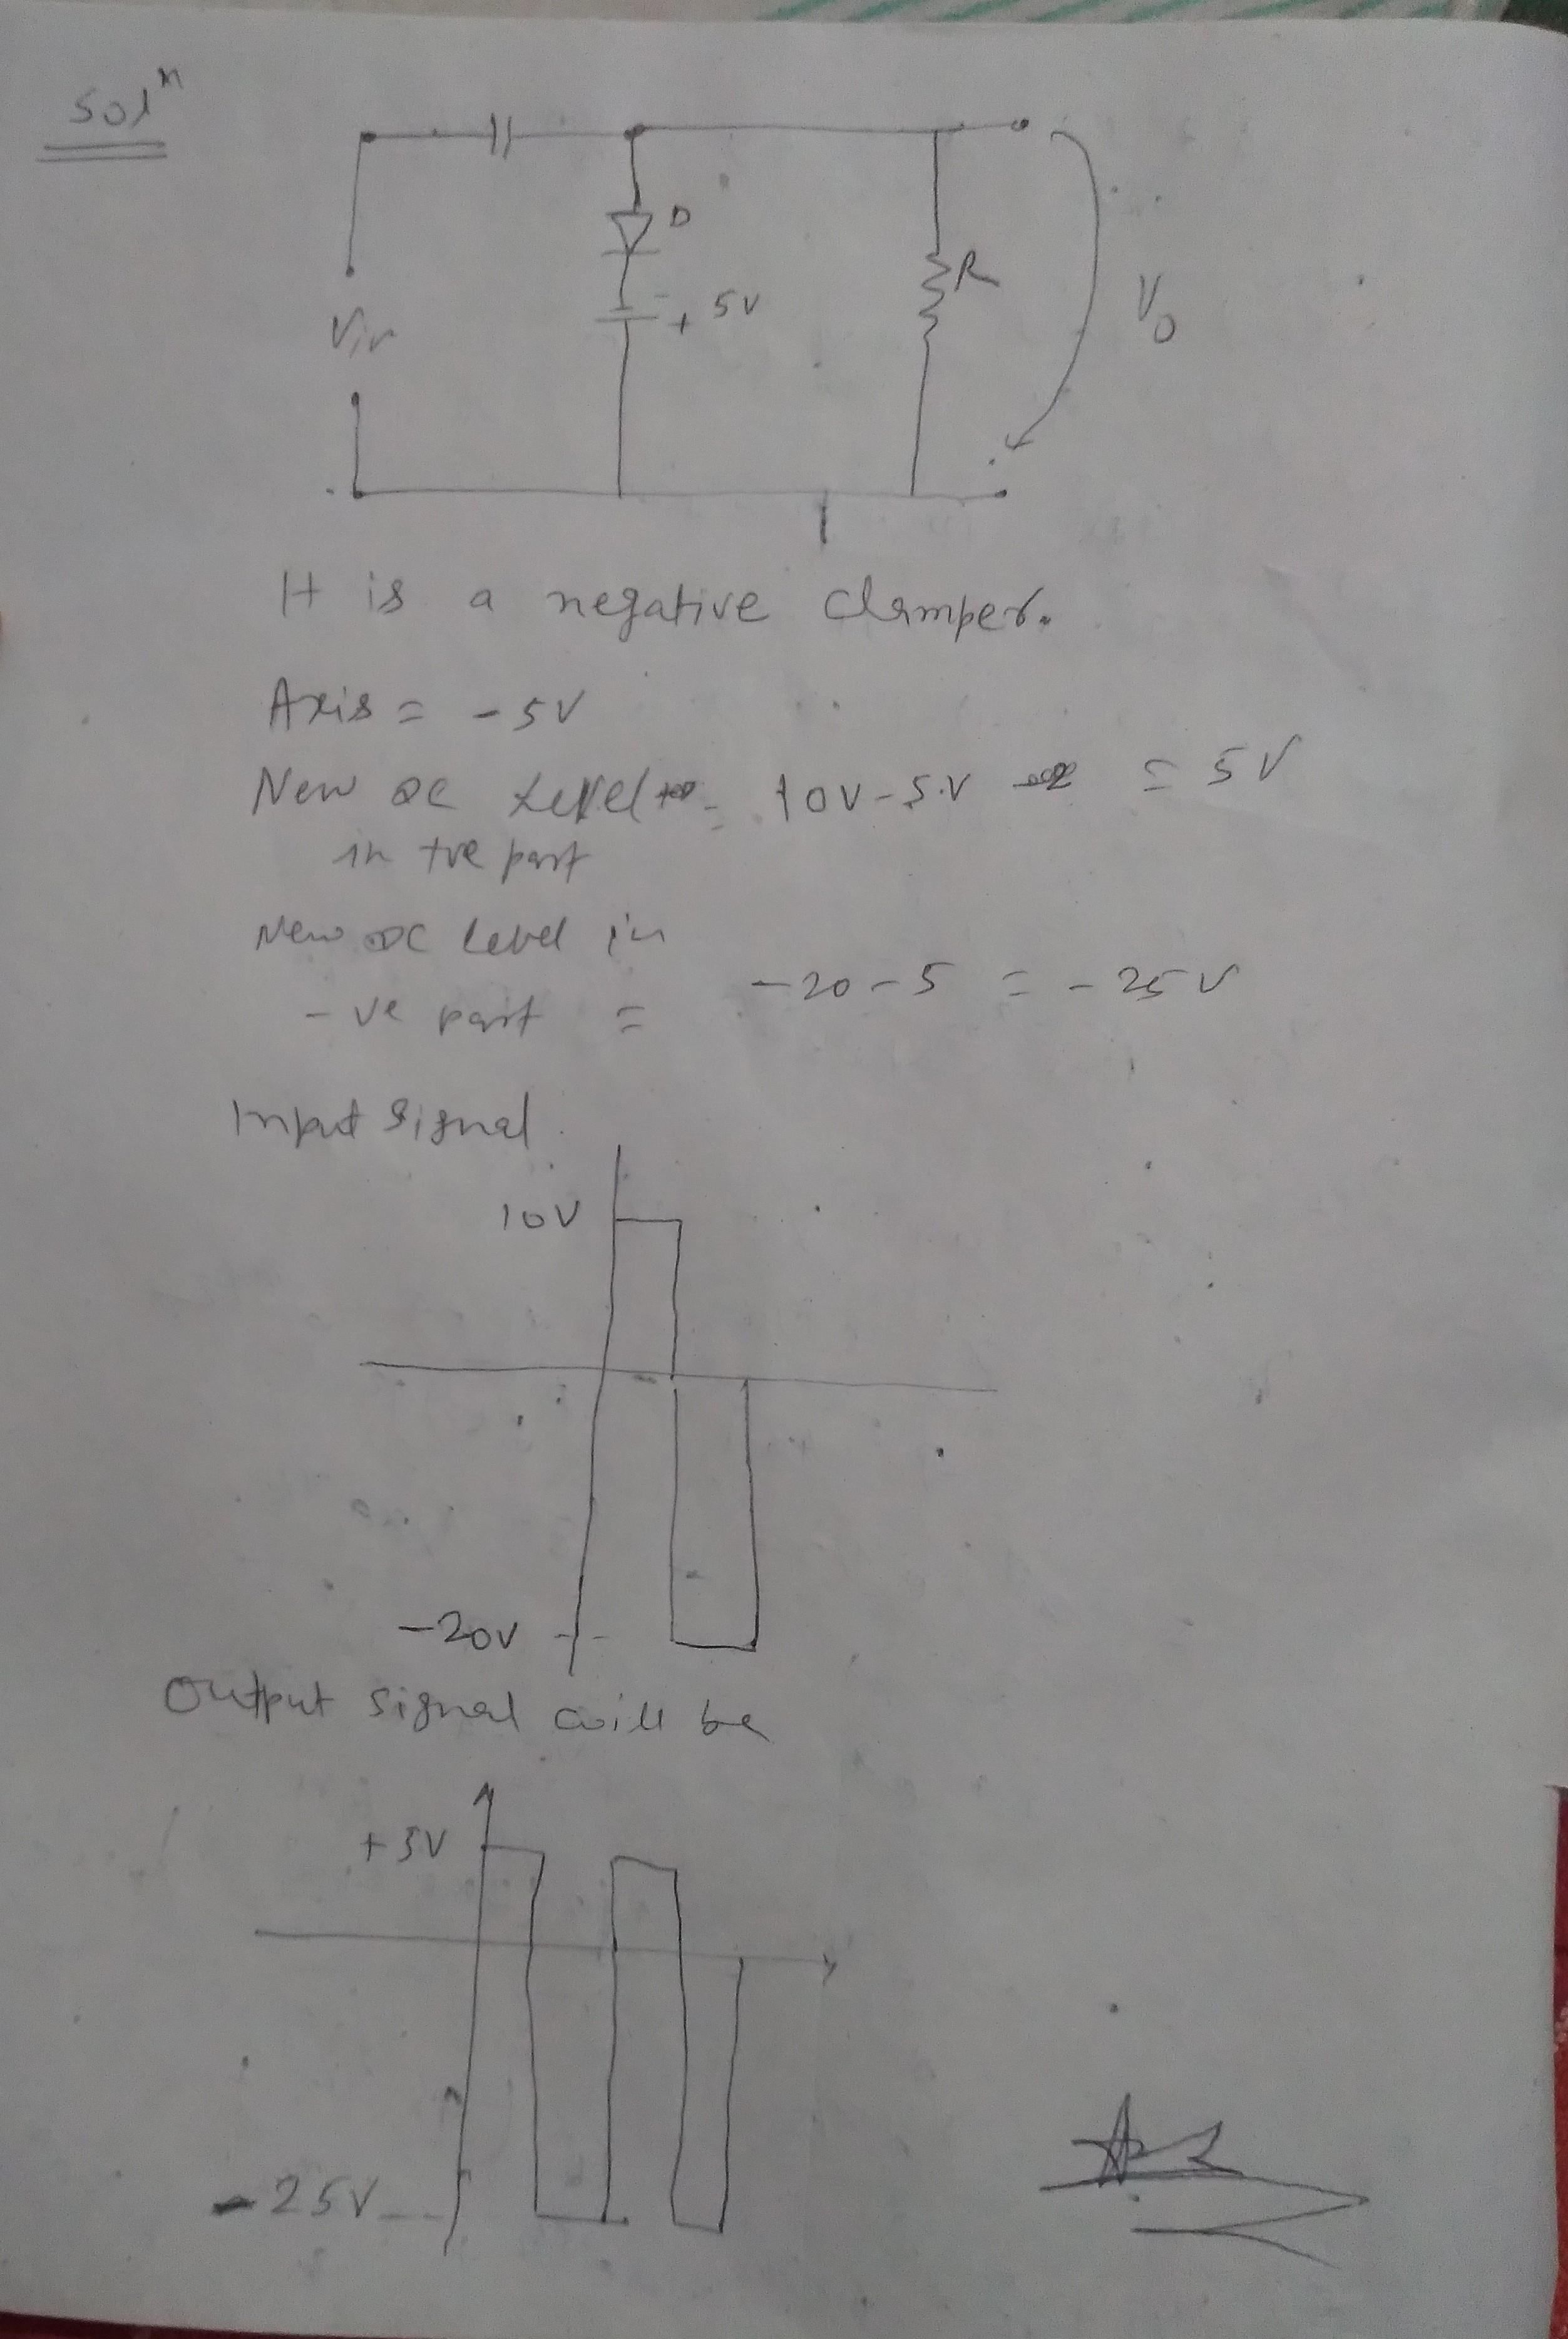 Solⁿ
D
- 5V
+
R
Vin
V₀
It is a negative clamper.
Axis = -5V
New DC Level = 10V-5.V = 5V
in +ve part
New DC Level in
-ve part = -20-5 = -25V
Input Signal
10V
-20V
Output signal will be
+5V
-25V